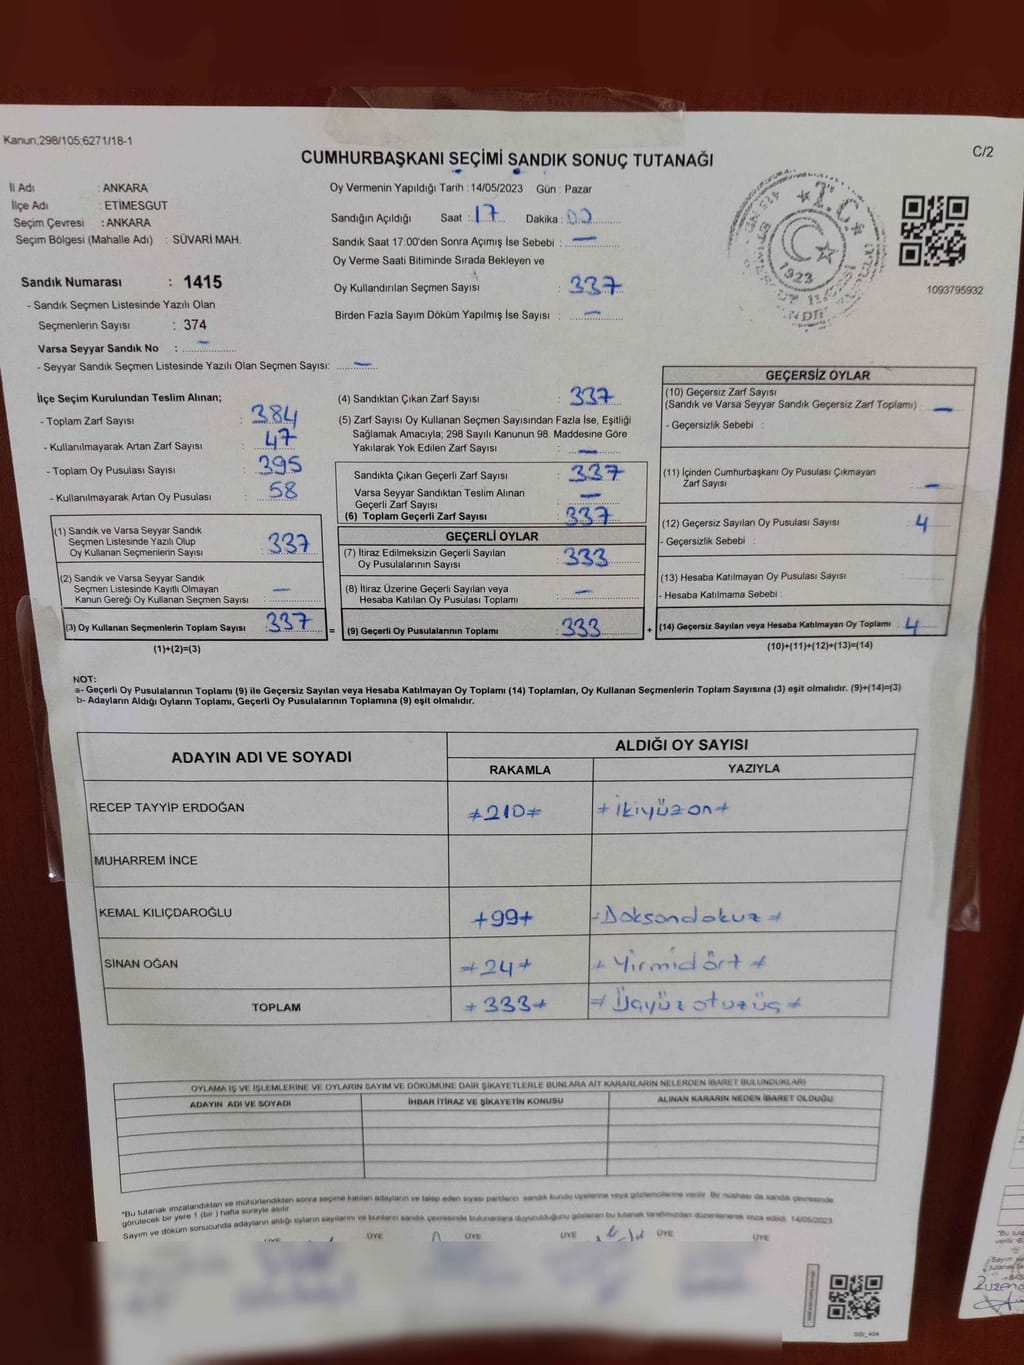 Kanun,298/105;6271/18-1
C/2
CUMHURBAŞKANI SEÇİMİ SANDIK SONUÇ TUTANAĞI
İl Adı : ANKARA
İlçe Adı : ETİMESGUT
Seçim Çevresi : ANKARA
Seçim Bölgesi (Mahalle Adı) : SÜVARİ MAH.
Oy Vermenin Yapıldığı Tarih : 14/05/2023 Gün : Pazar
Sandığın Açıldığı Saat : 17 Dakika : 00
Sandık Saat 17:00'den Sonra Açımış İse Sebebi : —
Oy Verme Saati Bitiminde Sırada Bekleyen ve
Oy Kullandırılan Seçmen Sayısı : 337
Birden Fazla Sayım Döküm Yapılmış İse Sayısı : —
T.C.
1923
1093795932
Sandık Numarası : 1415
- Sandık Seçmen Listesinde Yazılı Olan
Seçmenlerin Sayısı : 374
Varsa Seyyar Sandık No : —
- Seyyar Sandık Seçmen Listesinde Yazılı Olan Seçmen Sayısı: —
İlçe Seçim Kurulundan Teslim Alınan;
- Toplam Zarf Sayısı : 384
- Kullanılmayarak Artan Zarf Sayısı : 47
- Toplam Oy Pusulası Sayısı : 395
- Kullanılmayarak Artan Oy Pusulası : 58
(1) Sandık ve Varsa Seyyar Sandık
Seçmen Listesinde Yazılı Olup
Oy Kullanan Seçmenlerin Sayısı : 337
(2) Sandık ve Varsa Seyyar Sandık
Seçmen Listesinde Kayıtlı Olmayan
Kanun Gereği Oy Kullanan Seçmen Sayısı : —
(3) Oy Kullanan Seçmenlerin Toplam Sayısı : 337
(1)+(2)=(3)
(4) Sandıktan Çıkan Zarf Sayısı : 337
(5) Zarf Sayısı Oy Kullanan Seçmen Sayısından Fazla İse, Eşitliği
Sağlamak Amacıyla; 298 Sayılı Kanunun 98. Maddesine Göre
Yakılarak Yok Edilen Zarf Sayısı : —
Sandıkta Çıkan Geçerli Zarf Sayısı : 337
Varsa Seyyar Sandıktan Teslim Alınan
Geçerli Zarf Sayısı : —
(6) Toplam Geçerli Zarf Sayısı : 337
GEÇERLİ OYLAR
(7) İtiraz Edilmeksizin Geçerli Sayılan
Oy Pusulalarının Sayısı : 333
(8) İtiraz Üzerine Geçerli Sayılan veya
Hesaba Katılan Oy Pusulası Toplamı : —
= (9) Geçerli Oy Pusulalarının Toplamı : 333 +
GEÇERSİZ OYLAR
(10) Geçersiz Zarf Sayısı
(Sandık ve Varsa Seyyar Sandık Geçersiz Zarf Toplamı) : —
- Geçersizlik Sebebi :
(11) İçinden Cumhurbaşkanı Oy Pusulası Çıkmayan
Zarf Sayısı : —
(12) Geçersiz Sayılan Oy Pusulası Sayısı : 4
- Geçersizlik Sebebi :
(13) Hesaba Katılmayan Oy Pusulası Sayısı :
- Hesaba Katılmama Sebebi :
(14) Geçersiz Sayılan veya Hesaba Katılmayan Oy Toplamı : 4
(10)+(11)+(12)+(13)=(14)
NOT:
a- Geçerli Oy Pusulalarının Toplamı (9) ile Geçersiz Sayılan veya Hesaba Katılmayan Oy Toplamı (14) Toplamları, Oy Kullanan Seçmenlerin Toplam Sayısına (3) eşit olmalıdır. (9)+(14)=(3)
b- Adayların Aldığı Oyların Toplamı, Geçerli Oy Pusulalarının Toplamına (9) eşit olmalıdır.
ADAYIN ADI VE SOYADI
ALDIĞI OY SAYISI
RAKAMLA YAZIYLA
RECEP TAYYİP ERDOĞAN ≠210≠ + İkiyüzon +
MUHARREM İNCE
KEMAL KILIÇDAROĞLU +99+ - Doksandokuz +
SİNAN OĞAN +24+ + Yirmidört +
TOPLAM +333+ ≠ Üçyüzotuzüç ≠
OYLAMA İŞ VE İŞLEMLERİNE VE OYLARIN SAYIM VE DÖKÜMÜNE DAİR ŞİKAYETLERLE BUNLARA AİT KARARLARIN NELERDEN İBARET BULUNDUKLARI
ADAYIN ADI VE SOYADI İHBAR İTİRAZ VE ŞİKAYETİN KONUSU ALINAN KARARIN NEDEN İBARET OLDUĞU
"Bu tutanak imzalandıktan ve mühürlendikten sonra seçime katılan adayların ve talep eden siyasi partilerin sandık kurulu üyelerine veya gözlemcilerine verilir. Bir nüshası da sandık çevresinde
görülecek bir yere 1 (bir ) hafta süreyle asılır
Sayım ve döküm sonucunda adayların aldığı oyların sayılarını ve bunların sandık çevresinde bulunanlara duyurulduğunu gösteren bu tutanak tarafımızdan düzenlenerek imza edildi. 14/05/2023
ÜYE ÜYE ÜYE ÜYE ÜYE ÜYE